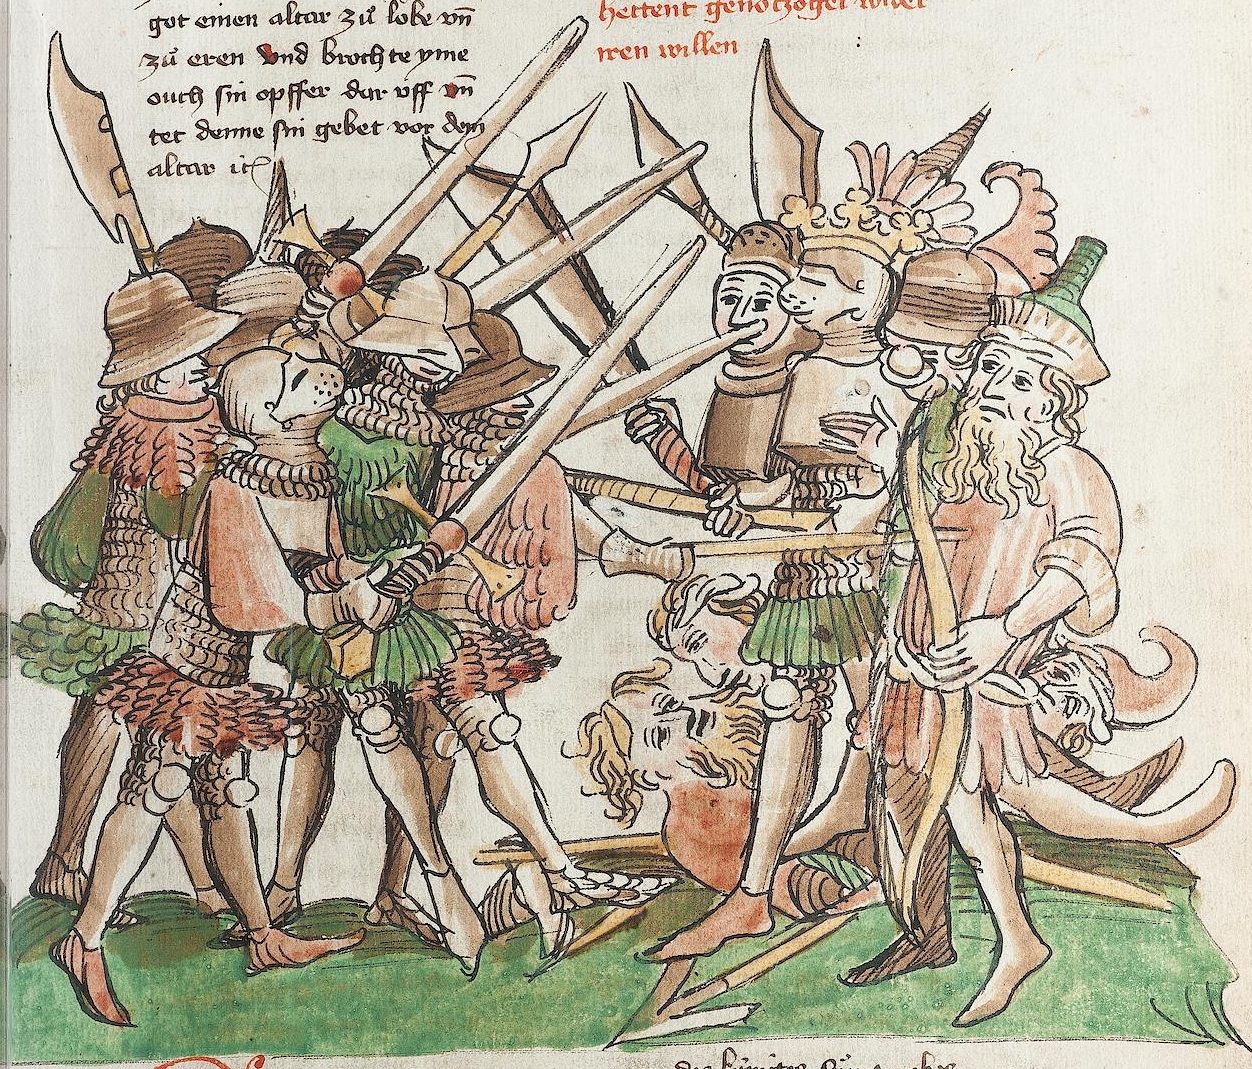 got einen altar zů lobe vn̄
zů eren vnd brochte yme
ouch sin opffer dar vff vn̄
tet denne sin gebet vor dem
altar ꝛc
hettent genotzoget wider
iren willen
des kúniges